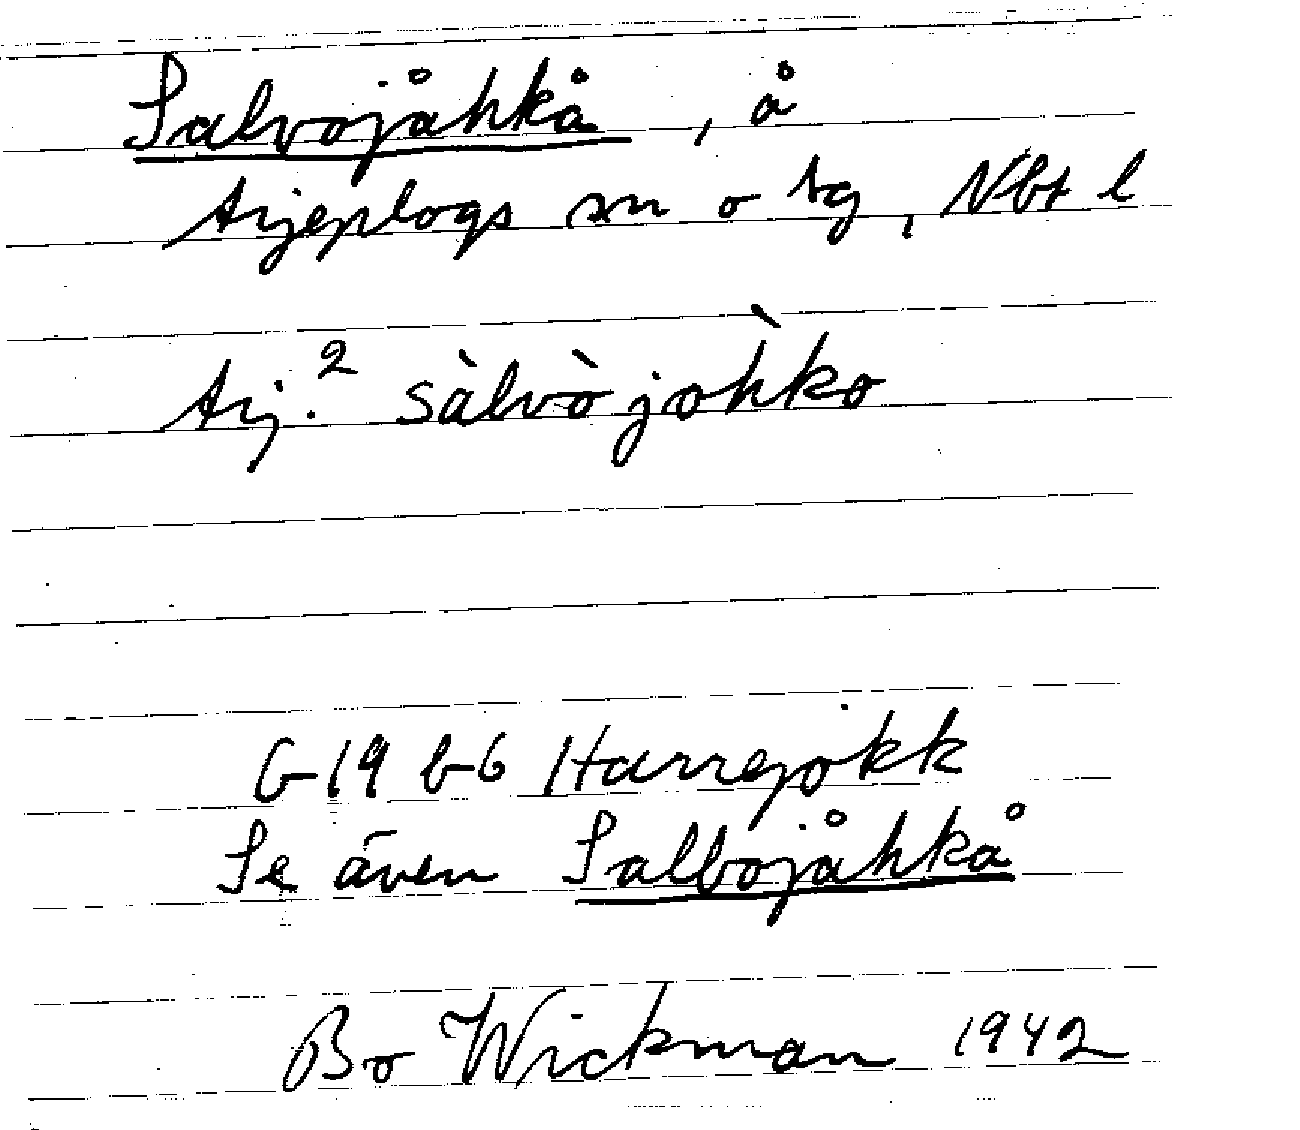 Salvojåhkå, å
Arjeplogs sn o tg, Nbt l
Arj.² sàlvò joh̀ko
G 19 b-6 Harrejokk
Se även Salbojåhkå
Bo Wickman 1942